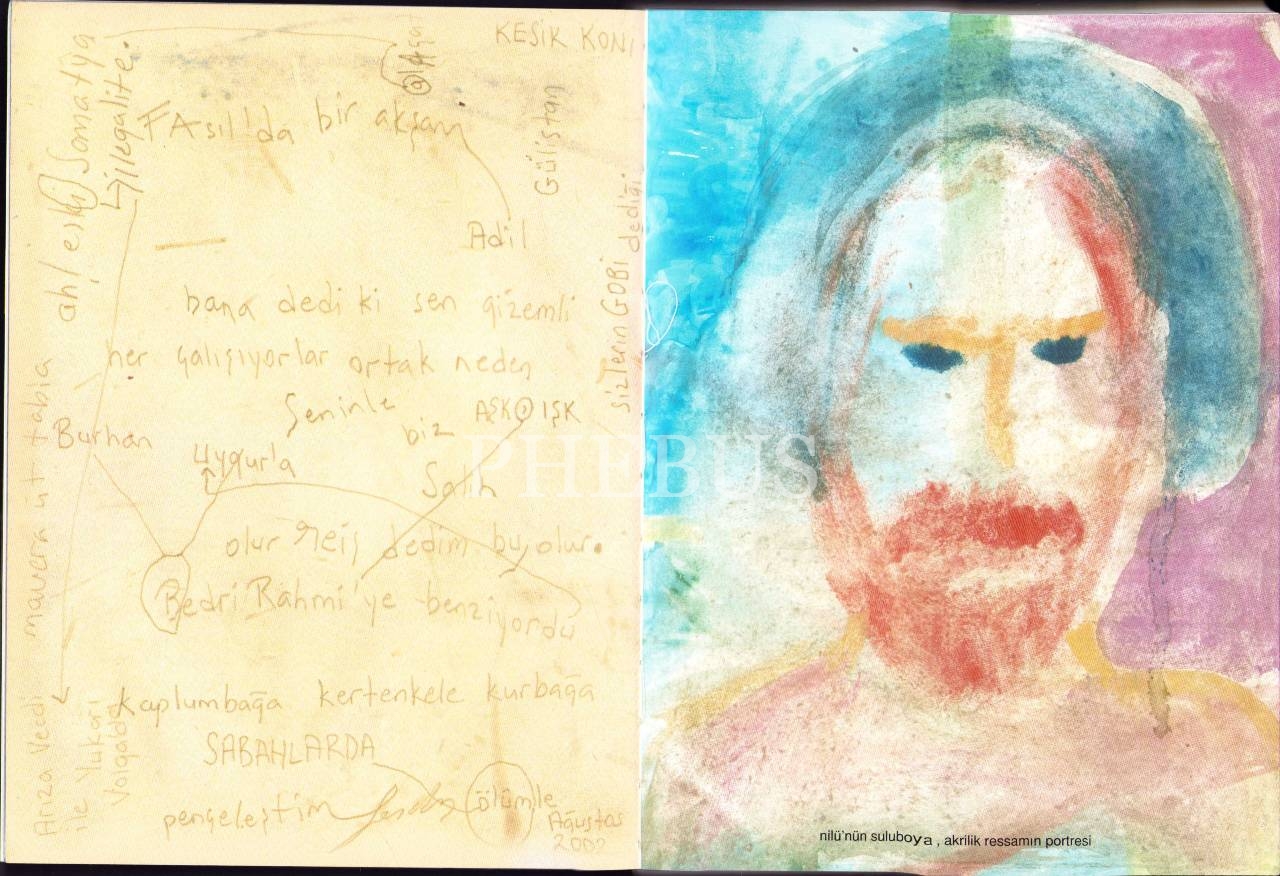 KESİK KONI
@lAgai
FAsıl'da bir akşam
Gülistan
Adil
ah! eski Samatya
illegalite.
sizlerin GOBİ dediği
bana dedi ki sen gizemli
her çalışıyorlar ortak neden
Seninle
biz
AŞK IŞK
Burhan
Uygur'la
Salih
olur reis dedim bu olur.
Bedri Rahmi'ye benziyordu
mavera üt tabia
kaplumbağa kertenkele kurbağa
SABAHLARDA
Arıza Vedi
ile Yukarı
Volgalda
pençeleştim
ölümle
Ağustos
2002
PHEBUS
nilü'nün suluboya , akrilik ressamın portresi